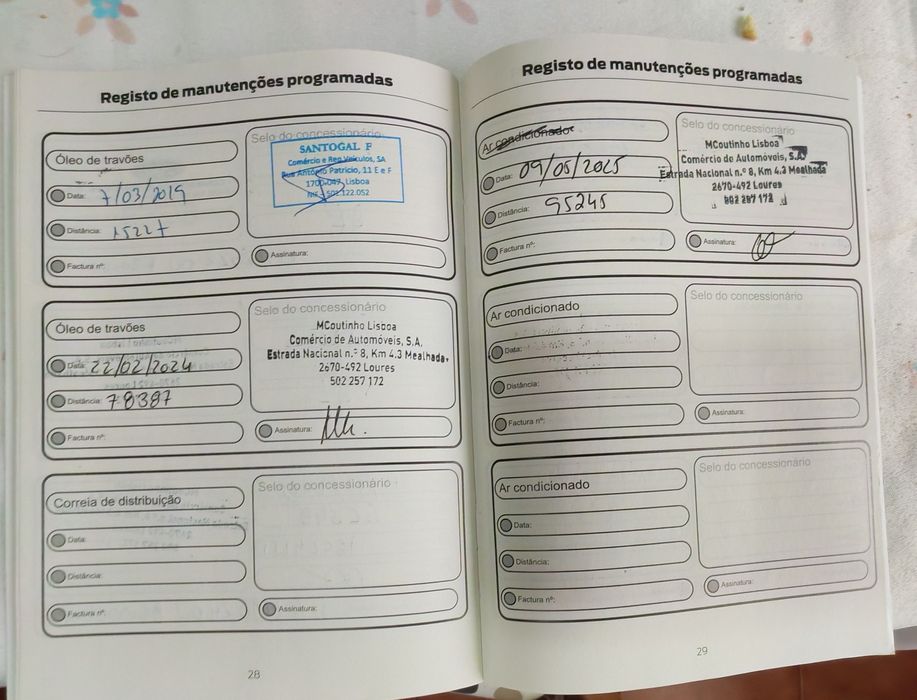 Registo de manutenções programadas
Óleo de travões
Data: 7/03/2019
Distância: 15227
Factura nº:
Selo do concessionário
SANTOGAL F
Comércio e Rep. Veículos, SA
Rua António Patrício, 11 E e F
1700-047 Lisboa
501 122 052
Assinatura:
Óleo de travões
Data: 22/02/2024
Distância: 78387
Factura nº:
Selo do concessionário
MCoutinho Lisboa
Comércio de Automóveis, S.A.
Estrada Nacional n.º 8, Km 4.3 Mealhada
2670-492 Loures
502 257 172
Assinatura:
Correia de distribuição
Data:
Distância:
Factura nº:
Selo do concessionário
Assinatura:
28
Registo de manutenções programadas
Ar condicionado
Data: 09/05/2025
Distância: 95245
Factura nº:
Selo do concessionário
MCoutinho Lisboa
Comércio de Automóveis, S.A.
Estrada Nacional n.º 8, Km 4.3 Mealhada
2670-492 Loures
Assinatura:
Ar condicionado
Data:
Distância:
Factura nº:
Selo do concessionário
Assinatura:
Ar condicionado
Data:
Distância:
Factura nº:
Selo do concessionário
Assinatura:
29